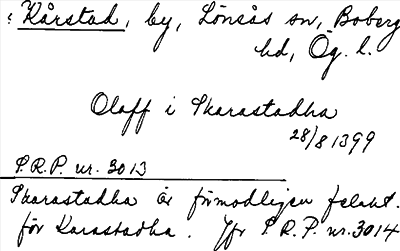 Kårstad, by, Lönsås sn, Boberg
hd, Ög. l.
Olaff i Skarastadha
28/8 1399
S.R.P. nr. 3013
Skarastadha är förmodligen felskt.
för Karastadha. Jfr S.R.P. nr. 3014